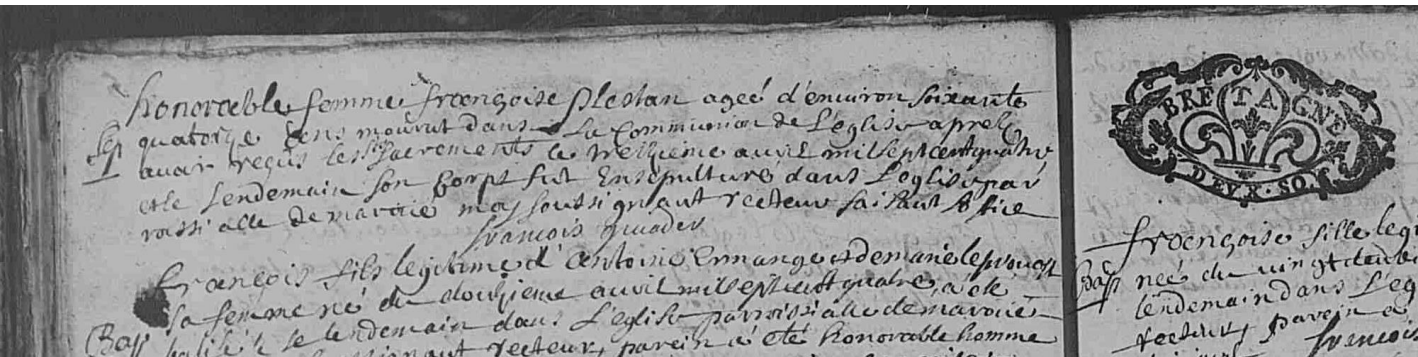 honorable femme françoise Plestan ageé d'environ soixante
Sep quatorze ans mourut dans la Communion de L'eglise aprez
avoir reçus les sacrements le treizieme avvil mil sept cent quatre
et le lendemain son Corps fut Ensepulturé dans L'eglise par
roissialle de maroüé moy soussignant recteur faisant office
françois
françois fils legitime d'antoine Ermange et de marie leprovost
sa femme né du douzieme avvil mil sept cent quatre, a été
Bap batisé le lendemain dans L'eglise parroissialle de maroüé
recteur, parein a été honorable homme
BRETAGNE
DEVX·SO
françoise fille legi
Bap neé du vingt deux
lendemain dans L'eg
recteur, parein a
francois